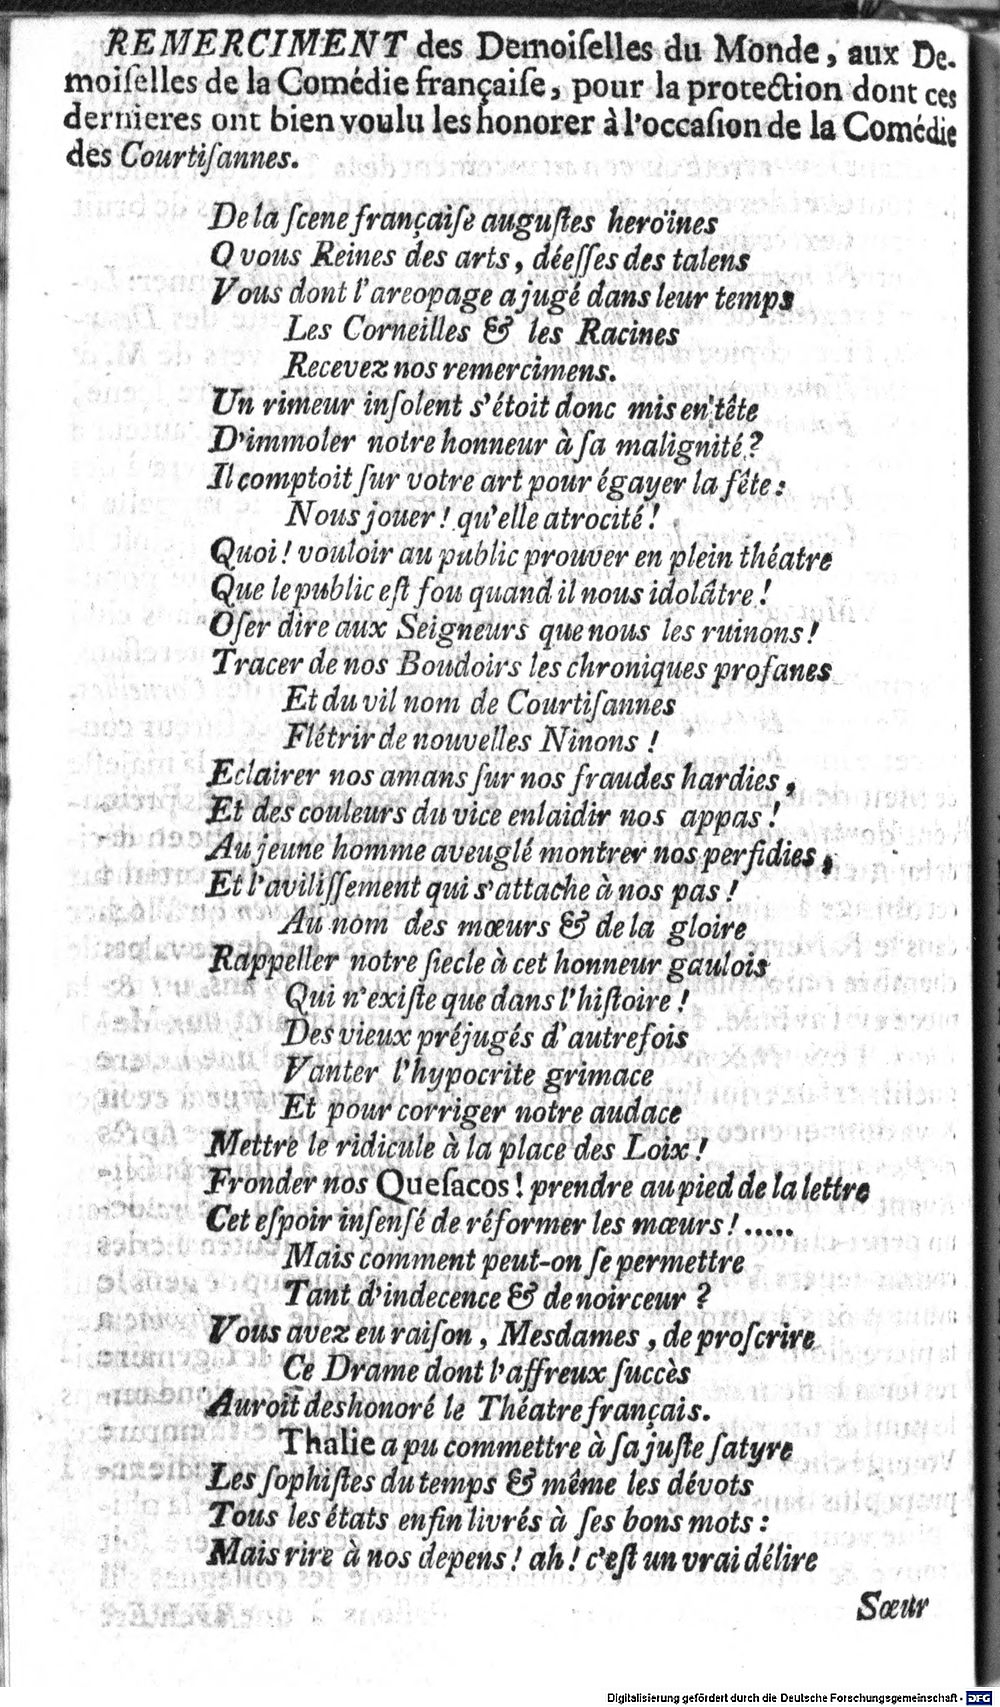 REMERCIMENT des Demoiſelles du Monde, aux De-
moiſelles de la Comédie françaiſe, pour la protection dont ces
dernieres ont bien voulu les honorer à l'occaſion de la Comédie
des Courtiſannes.
De la ſcene françaiſe auguſtes heroïnes
O vous Reines des arts, déeſſes des talens
Vous dont l'areopage a jugé dans leur temps
Les Corneilles & les Racines
Recevez nos remercimens.
Un rimeur inſolent s'étoit donc mis en tête
D'immoler notre honneur à ſa malignité?
Il comptoit ſur votre art pour égayer la fête:
Nous jouer! qu'elle atrocité!
Quoi! vouloir au public prouver en plein théatre
Que le public eſt fou quand il nous idolâtre!
Oſer dire aux Seigneurs que nous les ruinons!
Tracer de nos Boudoirs les chroniques profanes
Et du vil nom de Courtiſannes
Flétrir de nouvelles Ninons!
Eclairer nos amans ſur nos fraudes hardies,
Et des couleurs du vice enlaidir nos appas!
Au jeune homme aveuglé montrer nos perfidies,
Et l'aviliſſement qui s'attache à nos pas!
Au nom des mœurs & de la gloire
Rappeller notre ſiecle à cet honneur gaulois
Qui n'exiſte que dans l'hiſtoire!
Des vieux préjugés d'autrefois
Vanter l'hypocrite grimace
Et pour corriger notre audace
Mettre le ridicule à la place des Loix!
Fronder nos Queſacos! prendre au pied de la lettre
Cet eſpoir inſenſé de réformer les mœurs!.....
Mais comment peut-on ſe permettre
Tant d'indecence & de noirceur?
Vous avez eu raiſon, Mesdames, de proſcrire
Ce Drame dont l'affreux ſuccès
Auroit deshonoré le Théatre français.
Thalie a pu commettre à ſa juſte ſatyre
Les ſophiſtes du temps & même les dévots
Tous les états enfin livrés à ſes bons mots:
Mais rire à nos depens! ah! c'eſt un vrai délire
Sœur
Digitalisierung gefördert durch die Deutsche Forschungsgemeinschaft - DFG